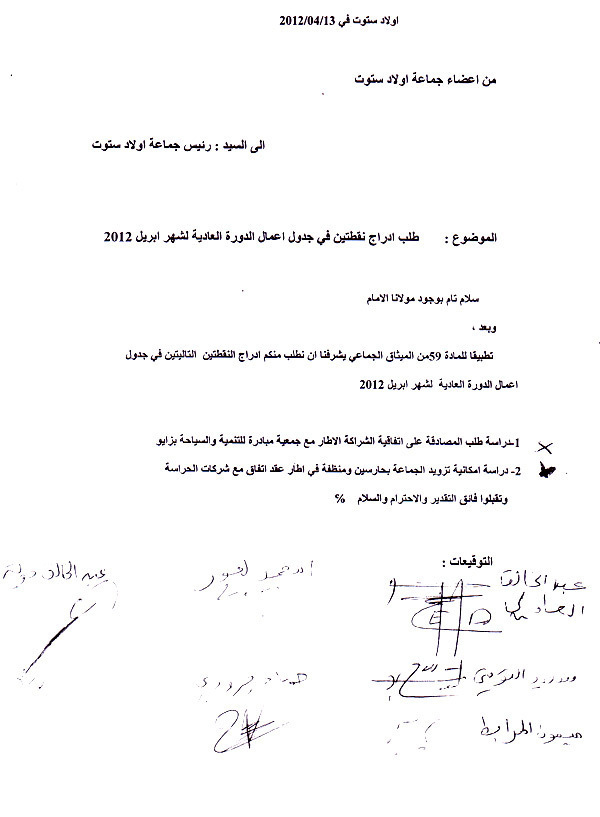 اولاد ستوت في 2012/04/13
من اعضاء جماعة اولاد ستوت
الى السيد : رئيس جماعة اولاد ستوت
الموضوع : طلب ادراج نقطتين في جدول اعمال الدورة العادية لشهر ابريل 2012
سلام تام بوجود مولانا الامام
وبعد ،
تطبيقا للمادة 59من الميثاق الجماعي يشرفنا ان نطلب منكم ادراج النقطتين التاليتين في جدول
اعمال الدورة العادية لشهر ابريل 2012
1-دراسة طلب المصادقة على اتفاقية الشراكة الاطار مع جمعية مبادرة للتنمية والسياحة بزايو
2- دراسة امكانية تزويد الجماعة بحارسين ومنظفة في اطار عقد اتفاق مع شركات الحراسة
وتقبلوا فائق التقدير والاحترام والسلام ٪
التوقيعات :
عبد الخالق
عبد الخالق
ميمون المرابط